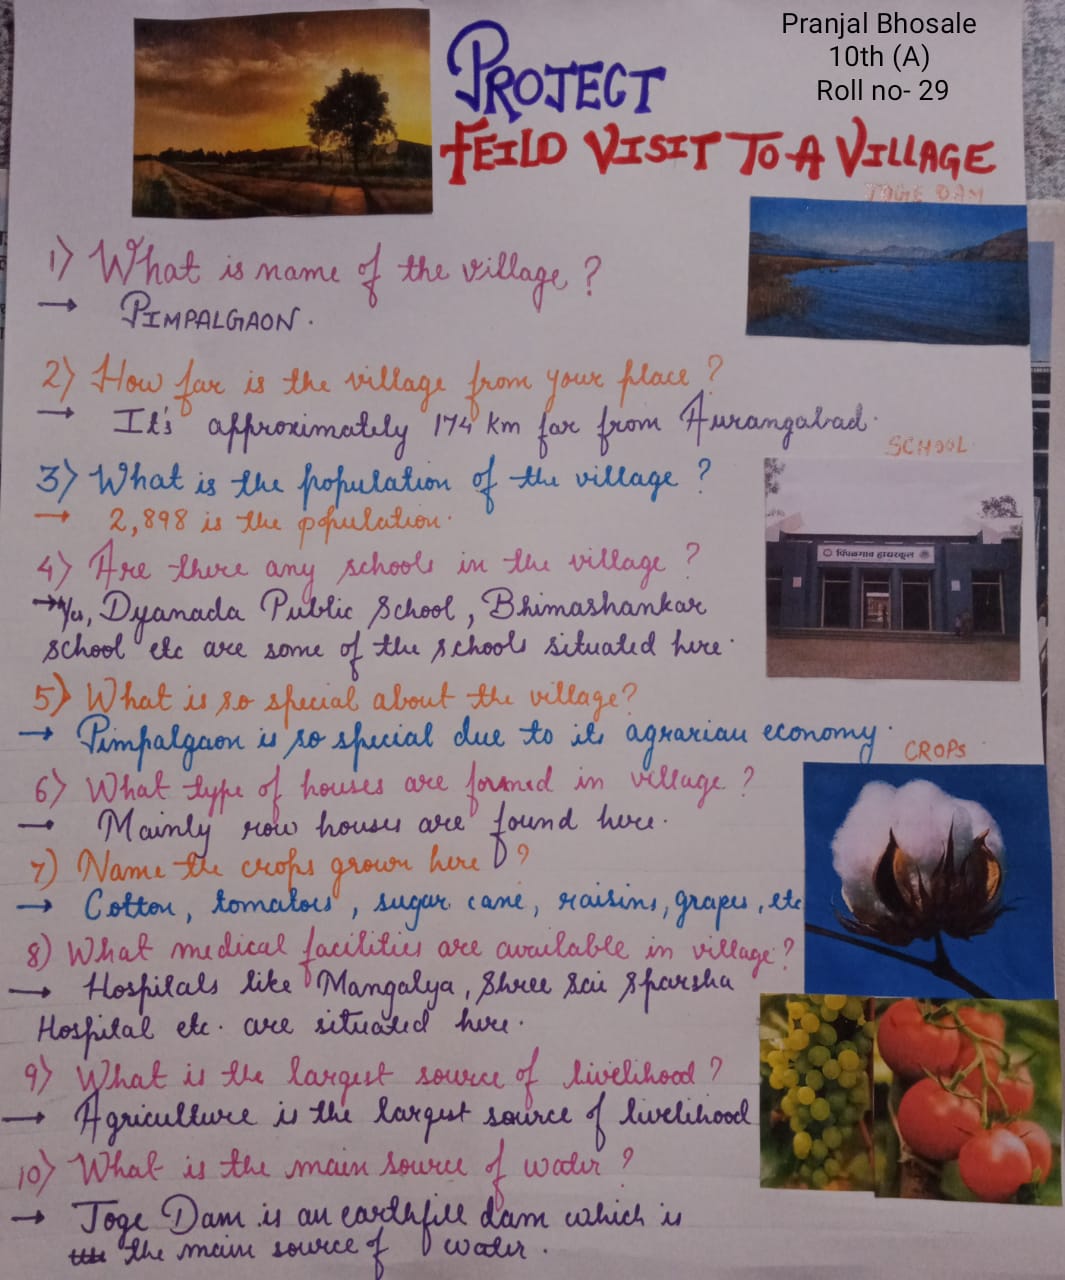 Pranjal Bhosale
10th (A)
Roll no- 29
PROJECT
FEILD VISIT TO A VILLAGE
JOGE DAM
1) What is name of the village ?
→ PIMPALGAON.
2) How far is the village from your place ?
→ It's approximately 174 km far from Aurangabad.
SCHOOL
3) What is the population of the village ?
→ 2,898 is the population.
4) Are there any schools in the village ?
→ Yes, Dyanada Public School, Bhimashankar
school etc are some of the schools situated here.
पिंपळगाव हायस्कूल
5) What is so special about the village?
→ Pimpalgaon is so special due to its agrarian economy.
CROPs
6) What type of houses are formed in village ?
→ Mainly row houses are found here.
7) Name the crops grown here ?
→ Cotton, tomatoes, sugar cane, raisins, grapes, etc
8) What medical facilities are available in village?
→ Hospitals like Mangalya, Shree Sai Sparsha
Hospital etc. are situated here.
9) What is the largest source of livelihood ?
→ Agriculture is the largest source of livelihood
10) What is the main source of water ?
→ Joge Dam is an earthfill dam which is
the main source of water.